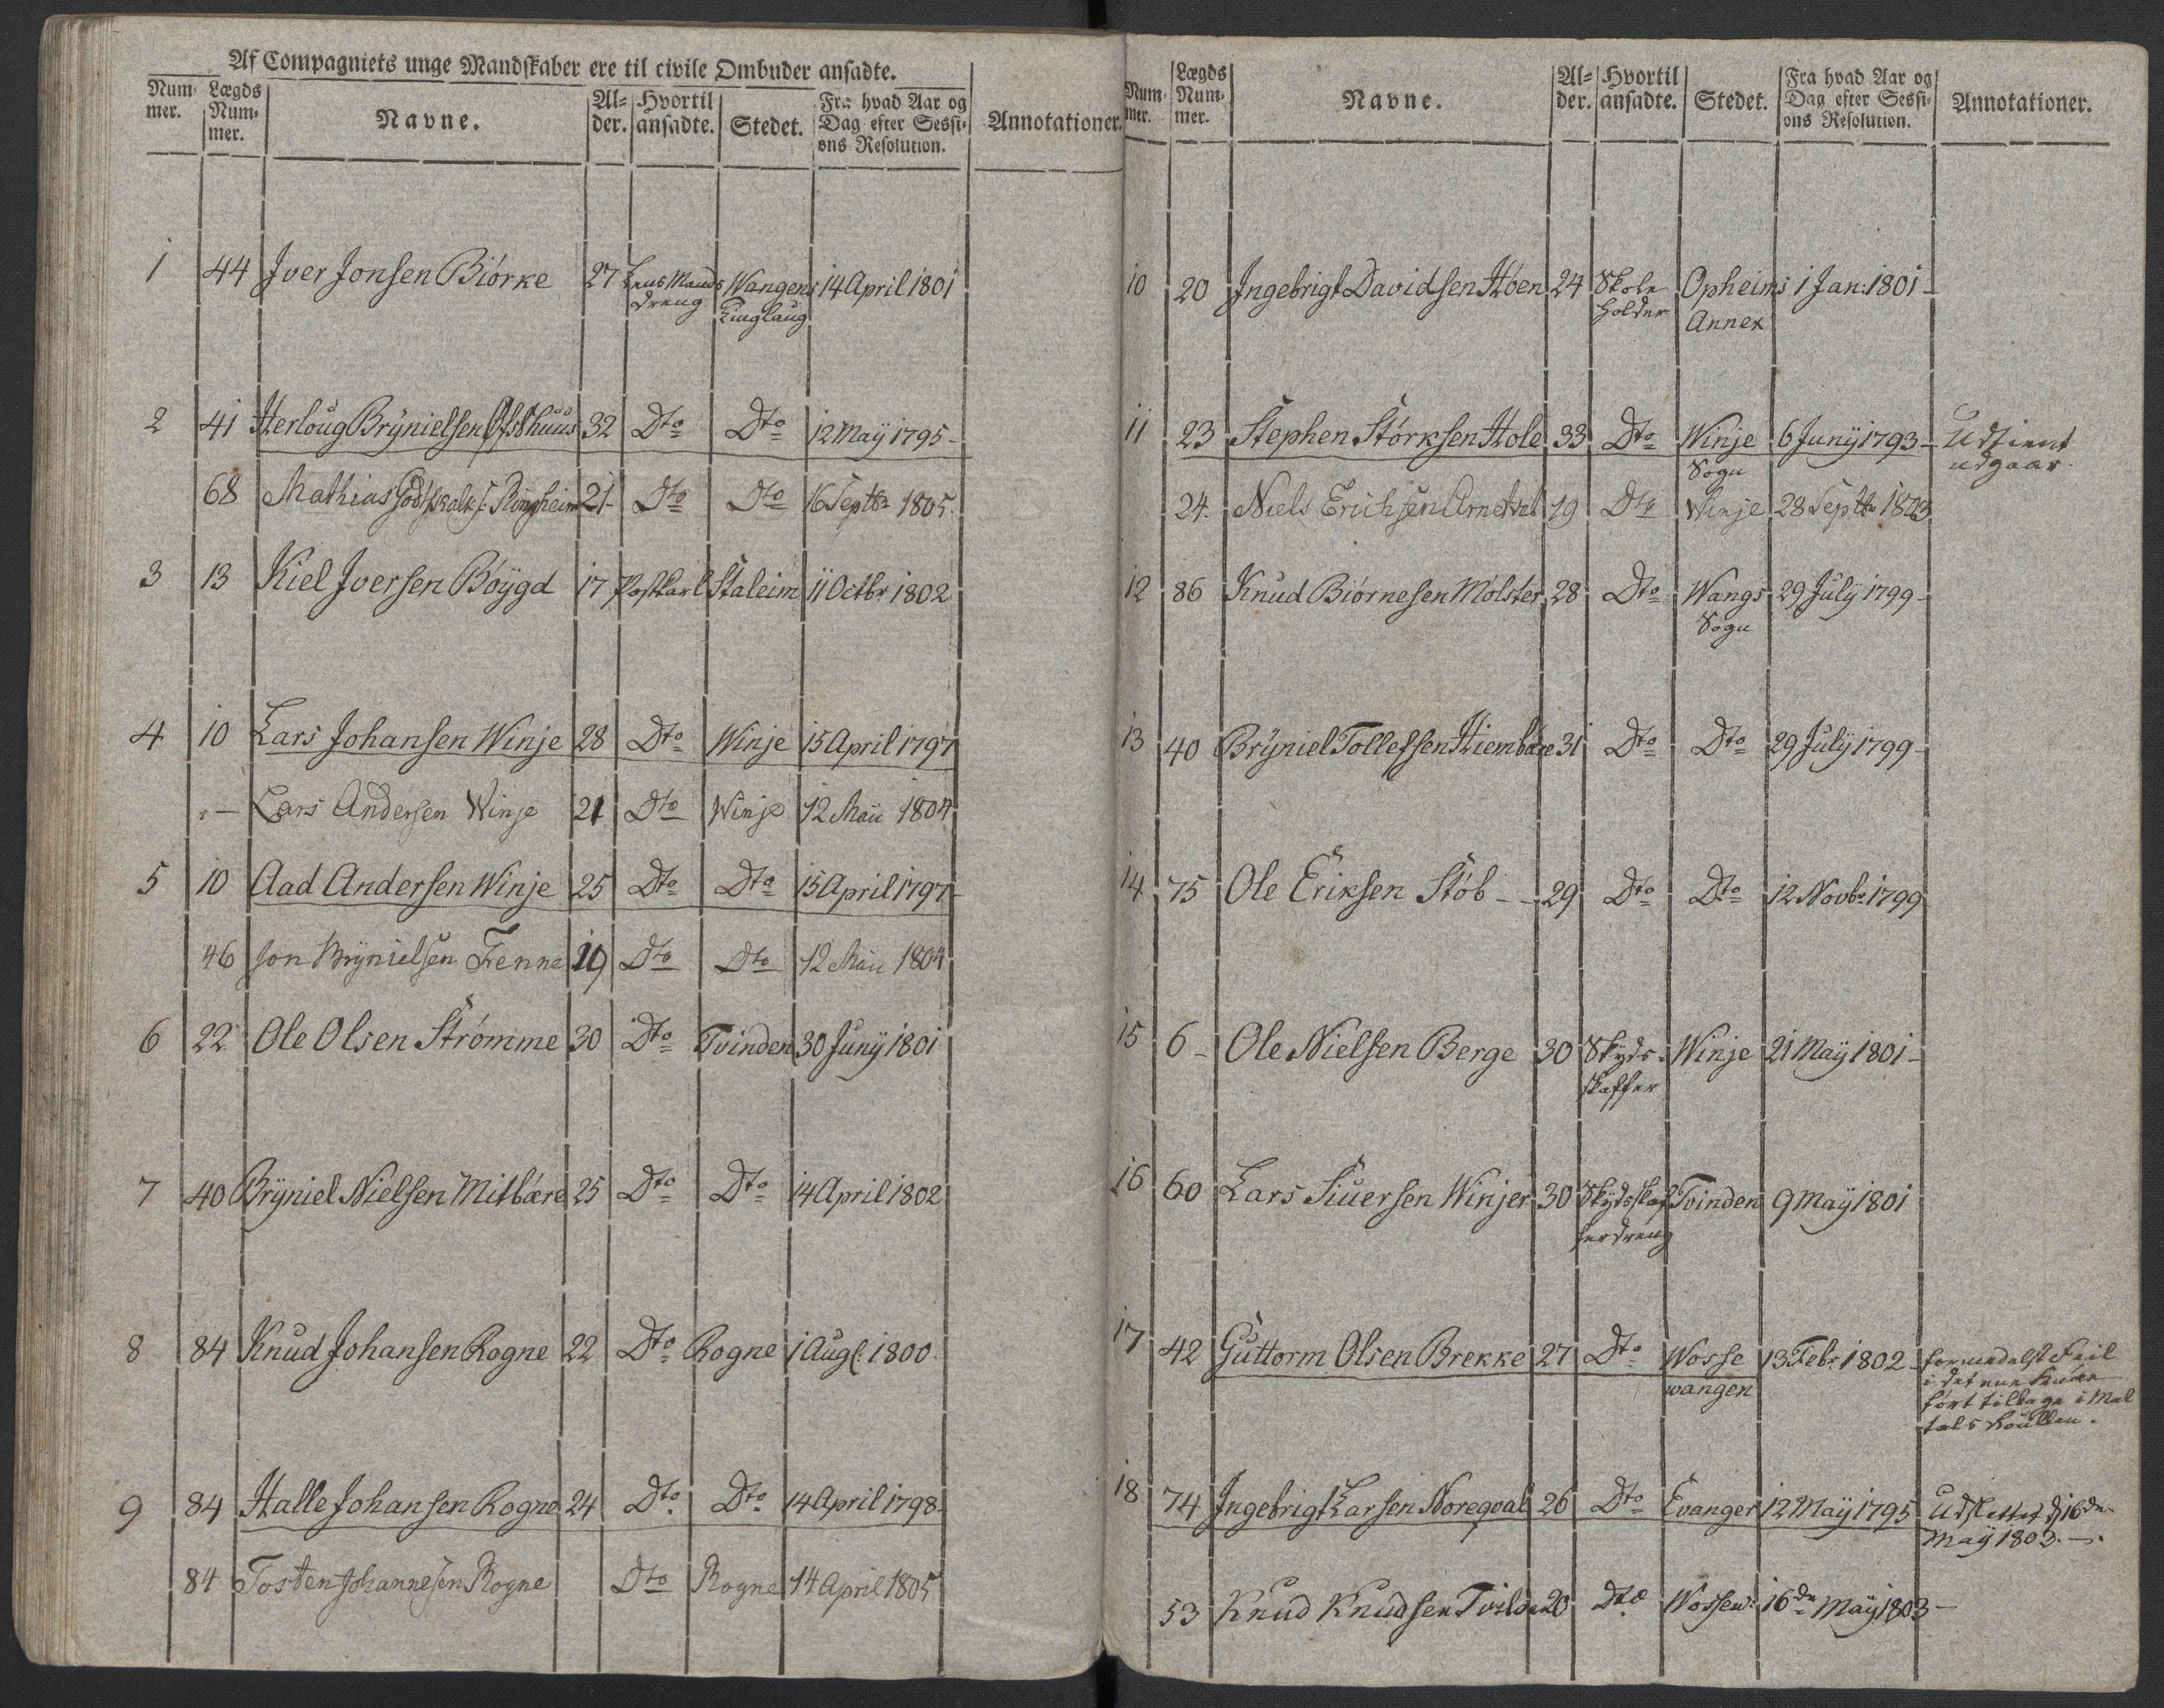 Af Compagniets unge Mandskaber ere til civile Ombuder ansadte.
Num- mer. Lægds Num- mer. Navne. Al- der. Hvortil ansadte. Stedet. Fra hvad Aar og Dag efter Sessi- ons Resolution. Annotationer.
1 44 Jver Jonsen Biørke 27 Lens Mands Wangens 14 April 1801
dreng Tinglaug
2 41 Herloug Brÿnielsen 32 Dto Dto 12 Maÿ 1795-
68 Mathias Godskalks: Ringheim 21 Dto Dto 16 Septbr 1805.
3 13 Kiel Jversen Bóÿgd 17 Postkarl Staleim 11 Octbr 1802
4 10 Lars Johansen Winje 28 Dto Winje 15 April 1797
" - Lars Andersen Winje 21 Dto Winje 12 Maii 1804
5 10 Aad Andersen Winje 25 Dto Dto 15 April 1797-
46 Jon Brynielsen Fenne 19 Dto Dto 12 Maii 1804
6 22 Ole Olsen Strómme 30 Dto Tvinden 30 Junÿ 1801
7 40 Brÿniel Nielsen Mitbære 25 Dto Dto 14 April 1802
8 84 Knud Johansen Rogne 22 Dto Rogne 1 Aug: 1800
9 84 Halle Johansen Rogne 24 Dto Dto 14 April 1798-
84 Tosten Johannesen Rogne Dto Rogne 14 April 1805
Num- mer. Lægds Num- mer. Navne. Al- der. Hvortil ansadte. Stedet. Fra hvad Aar og Dag efter Sessi- ons Resolution. Annotationer.
10 20 Jngebrigt Davidsen Hóen 24 Skole Opheims 1 Jan: 1801-
holder Annex
11 23 Stephen Stórksen Hole 33 Dto Winje 6 Junÿ 1793- Udtient
Sogn udgaar.
24. Niels Erichsen 19 Dto Winje 28 Septbr 1803
12 86 Knud Biórnesen Mólster 28 Dto Wangs 29 Julÿ 1799-
Sogn
13 40 Brÿniel Tollefsen Hiembære 31 Dto Dto 29 Julÿ 1799-
14 75 Ole Eriksen Stób - - 29 Dto Dto 12 Novbr 1799
15 6- Ole Nielsen Berge 30 Skyds- Winje 21 Maÿ 1801-
skaffer
16 60 Lars Siuersen Winjer 30 Skydsskaf Tvinden 9 Maÿ 1801
ferdreng
17 42 Guttorm Olsen Brekke 27 Dto Wosse 13 Febr: 1802- formedelst Feil
wangen i det
fórt tilbage i Mal
tals Roullen.
18 74 Jngebrigt Larsen Noreqval 26 Dto Evanger 12 Maÿ 1795 Udslettet d 16de
Maÿ 1803.-.
53 Knud Knudsen Tvilde 20 Dto Wossew: 16de Maÿ 1803-